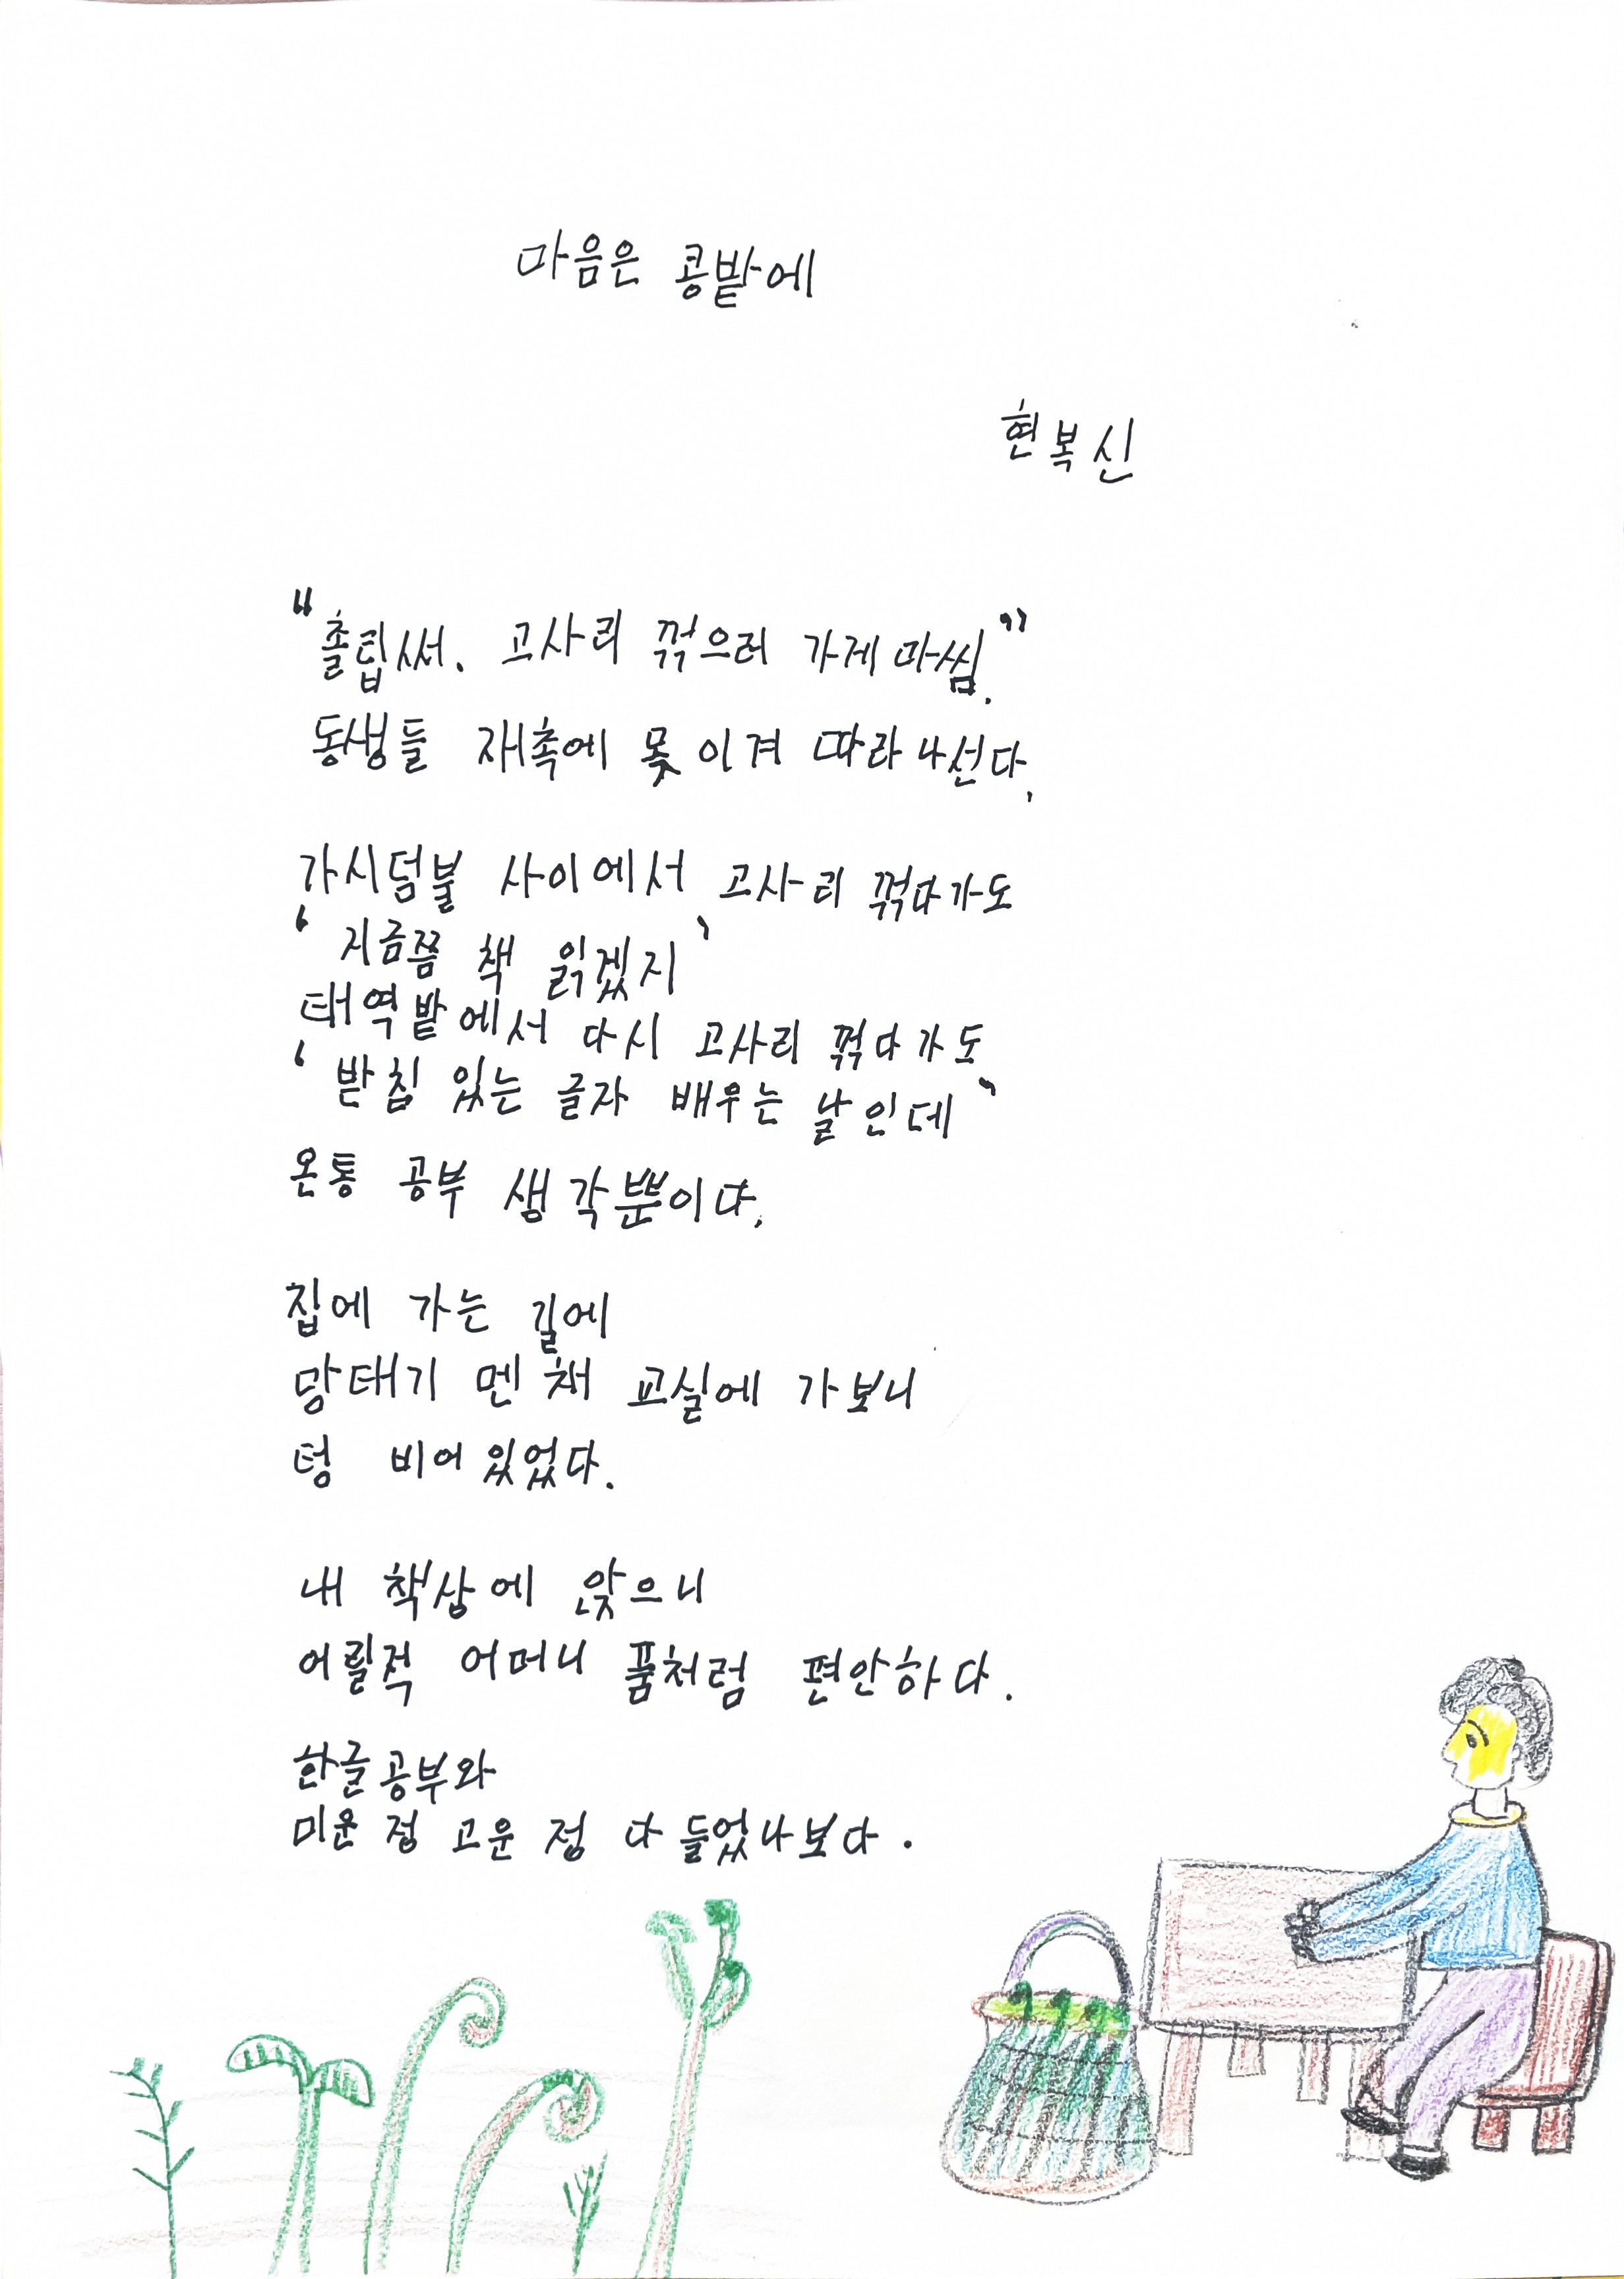 마음은 콩밭에
현복신
"촐립써. 고사리 꺾으러 가게마씸."
동생들 재촉에 못 이겨 따라나선다.
가시덤불 사이에서 고사리 꺾다가도
'지금쯤 책 읽겠지'
태역밭에서 다시 고사리 꺾다가도
'받침 있는 글자 배우는 날인데'
온통 공부 생각뿐이다.
집에 가는 길에
망태기 멘 채 교실에 가보니
텅 비어있었다.
내 책상에 앉으니
어릴적 어머니 품처럼 편안하다.
한글공부와
미운 정 고운 정 다 들었나보다.